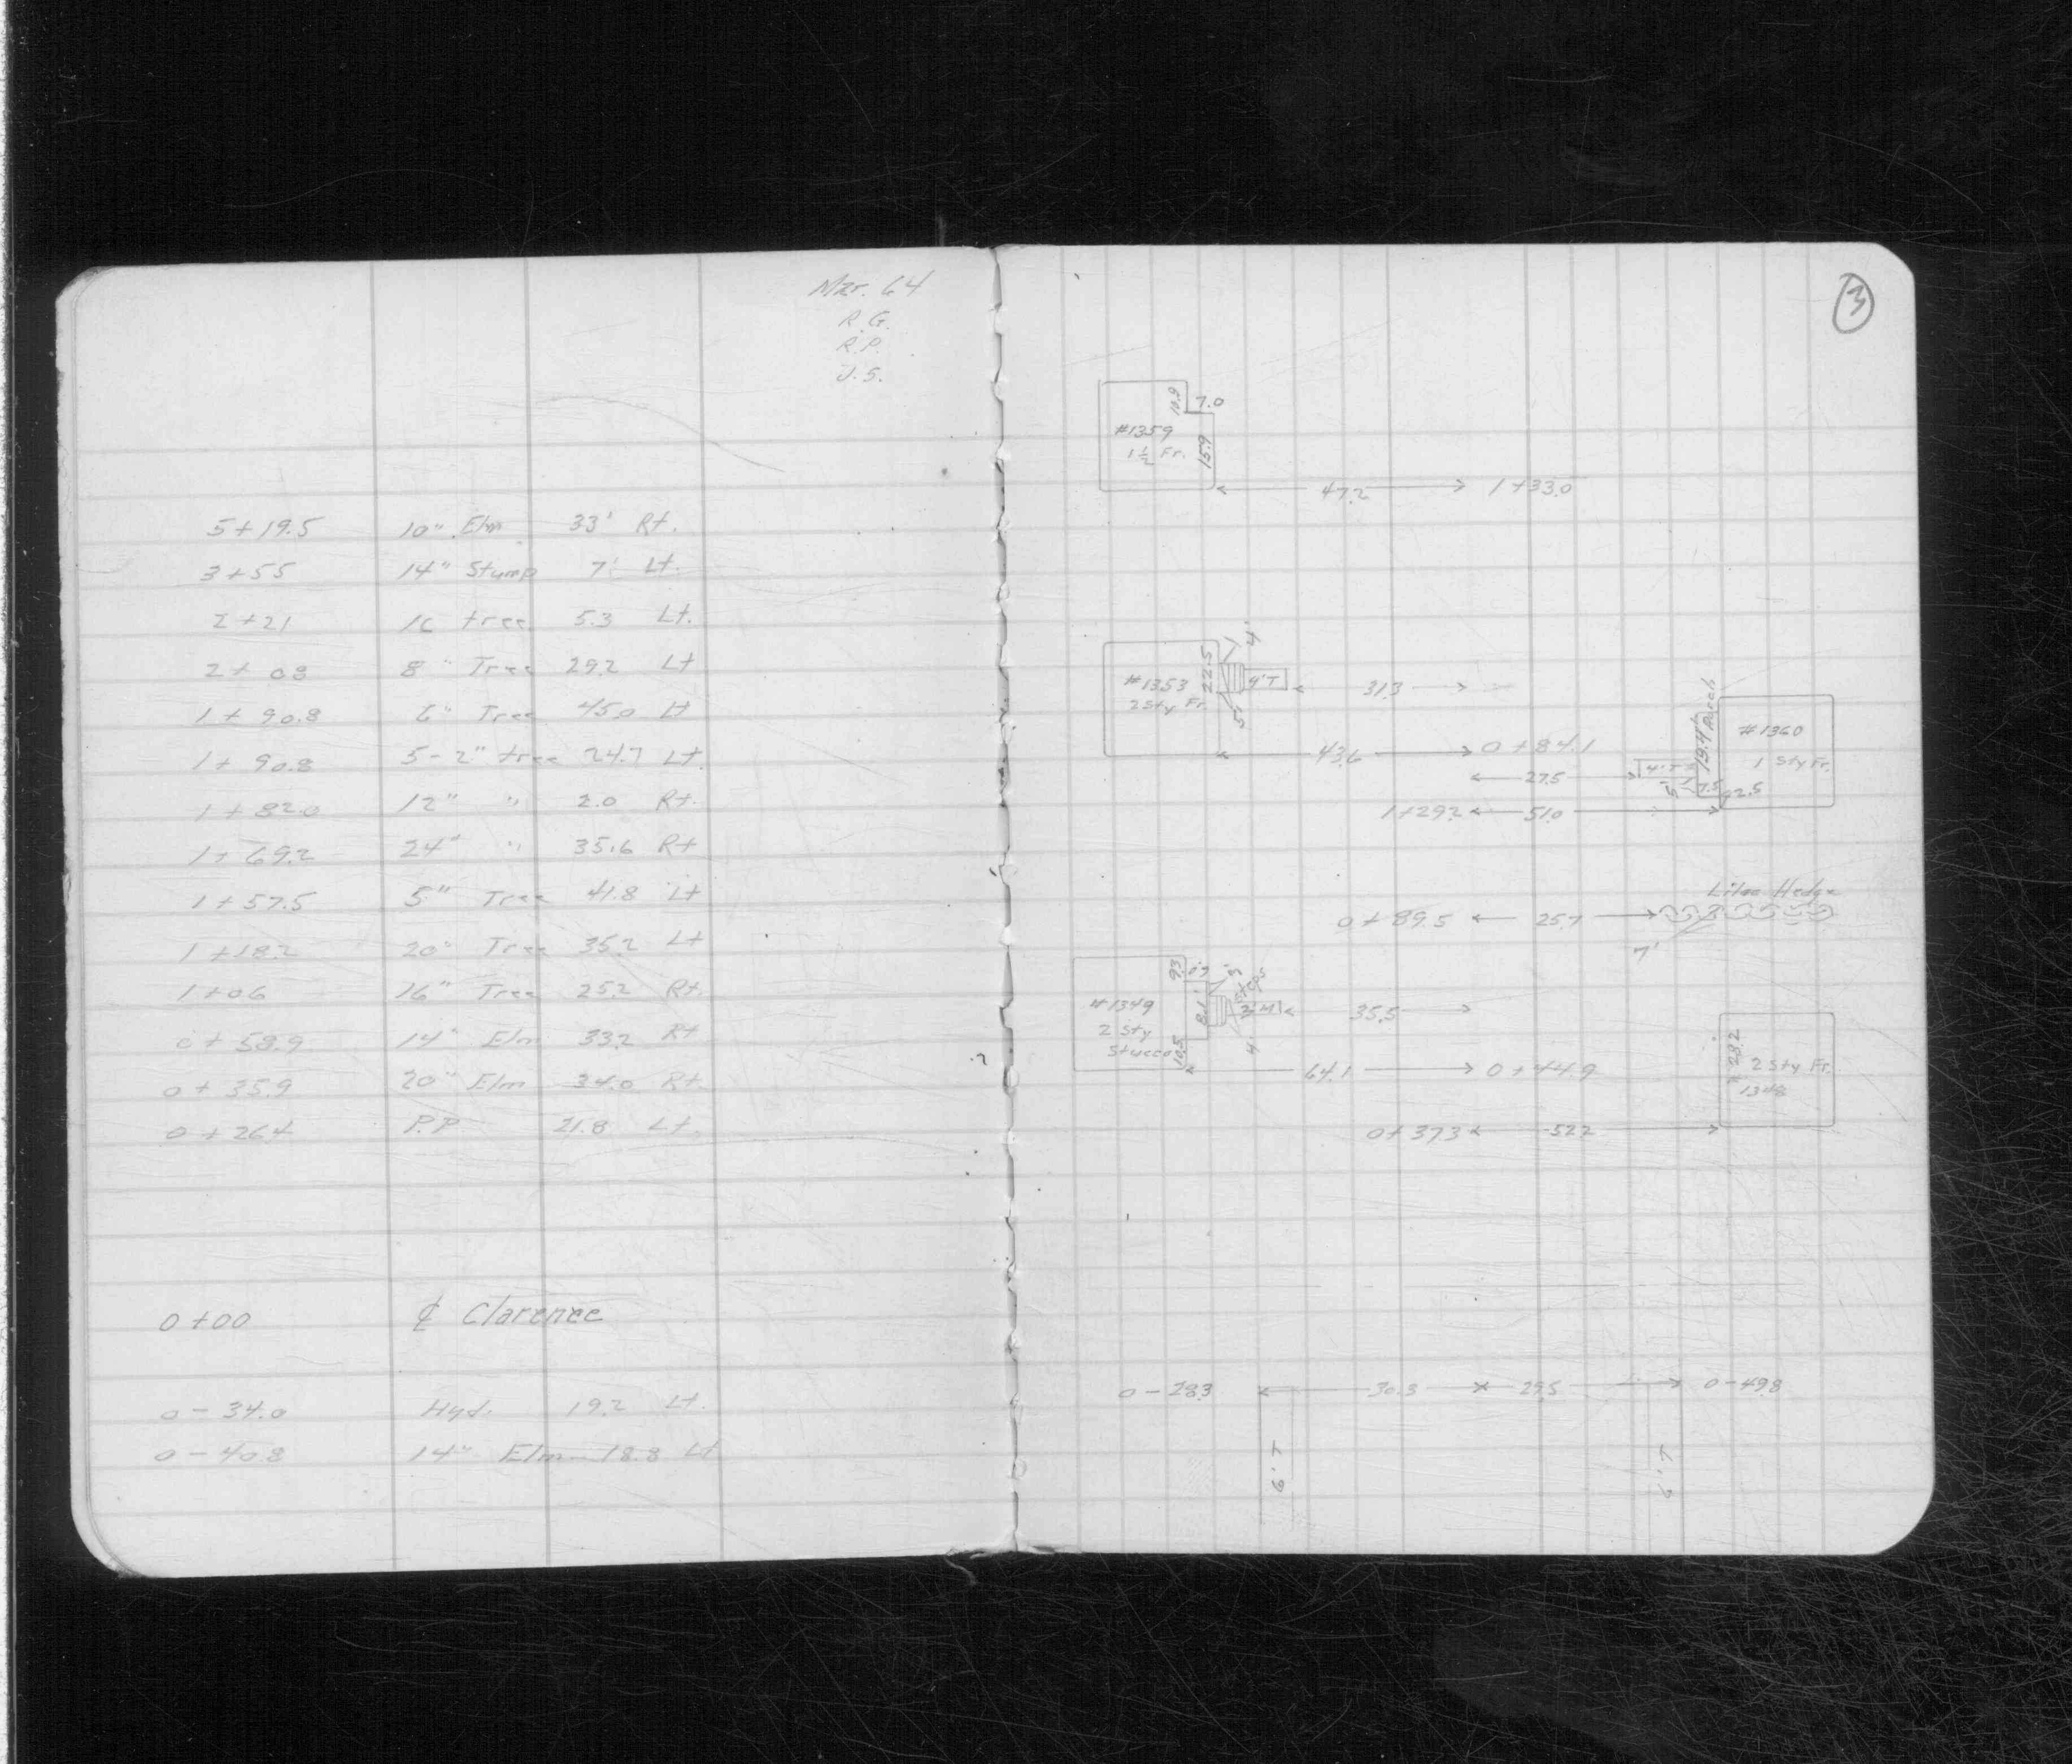 Mar. 64
R.G.
R.P.
J.S.
5+19.5 10" Elm 33' Rt.
3+55 14" Stump 7' Lt.
2+21 16 tree 5.3 Lt.
2+08 8" Tree 29.2 Lt
1+90.8 6" Tree 45.0 Lt
1+90.8 5-2" tree 24.7 Lt.
1+82.0 12" " 2.0 Rt.
1+69.2 24" " 35.6 Rt
1+57.5 5" Tree 41.8 Lt
1+18.2 20" Tree 35.2 Lt
1+06 16" Tree 25.2 Rt.
0+58.9 14" Elm 33.2 Rt
0+35.9 20" Elm 34.0 Rt.
0+26.4 P.P. 21.8 Lt.
0+00 ℄ Clarence
0-34.0 Hyd. 19.2 Lt.
0-40.8 14" Elm 18.8 Lt
3
10.9 7.0
#1359
1½ Fr. 15.9
47.2 1+33.0
4'
#1353 22.5 4'T 31.3
2 Sty Fr. 5'
43.6 0+84.1
19.4' Porch #1360
27.5 4'T 1 Sty Fr.
5' 7.5 2.5
1+29.2 51.0
Lilac Hedge
0+89.5 25.7
7'
9.3 3 Steps
#1349 8.1 35.5
2 Sty 4'
Stucco 10.5
64.1 0+44.9
28.2 2 Sty Fr.
#1348
0+37.3 52.2
0-28.3 30.3 29.5 0-49.8
6'T 6'T